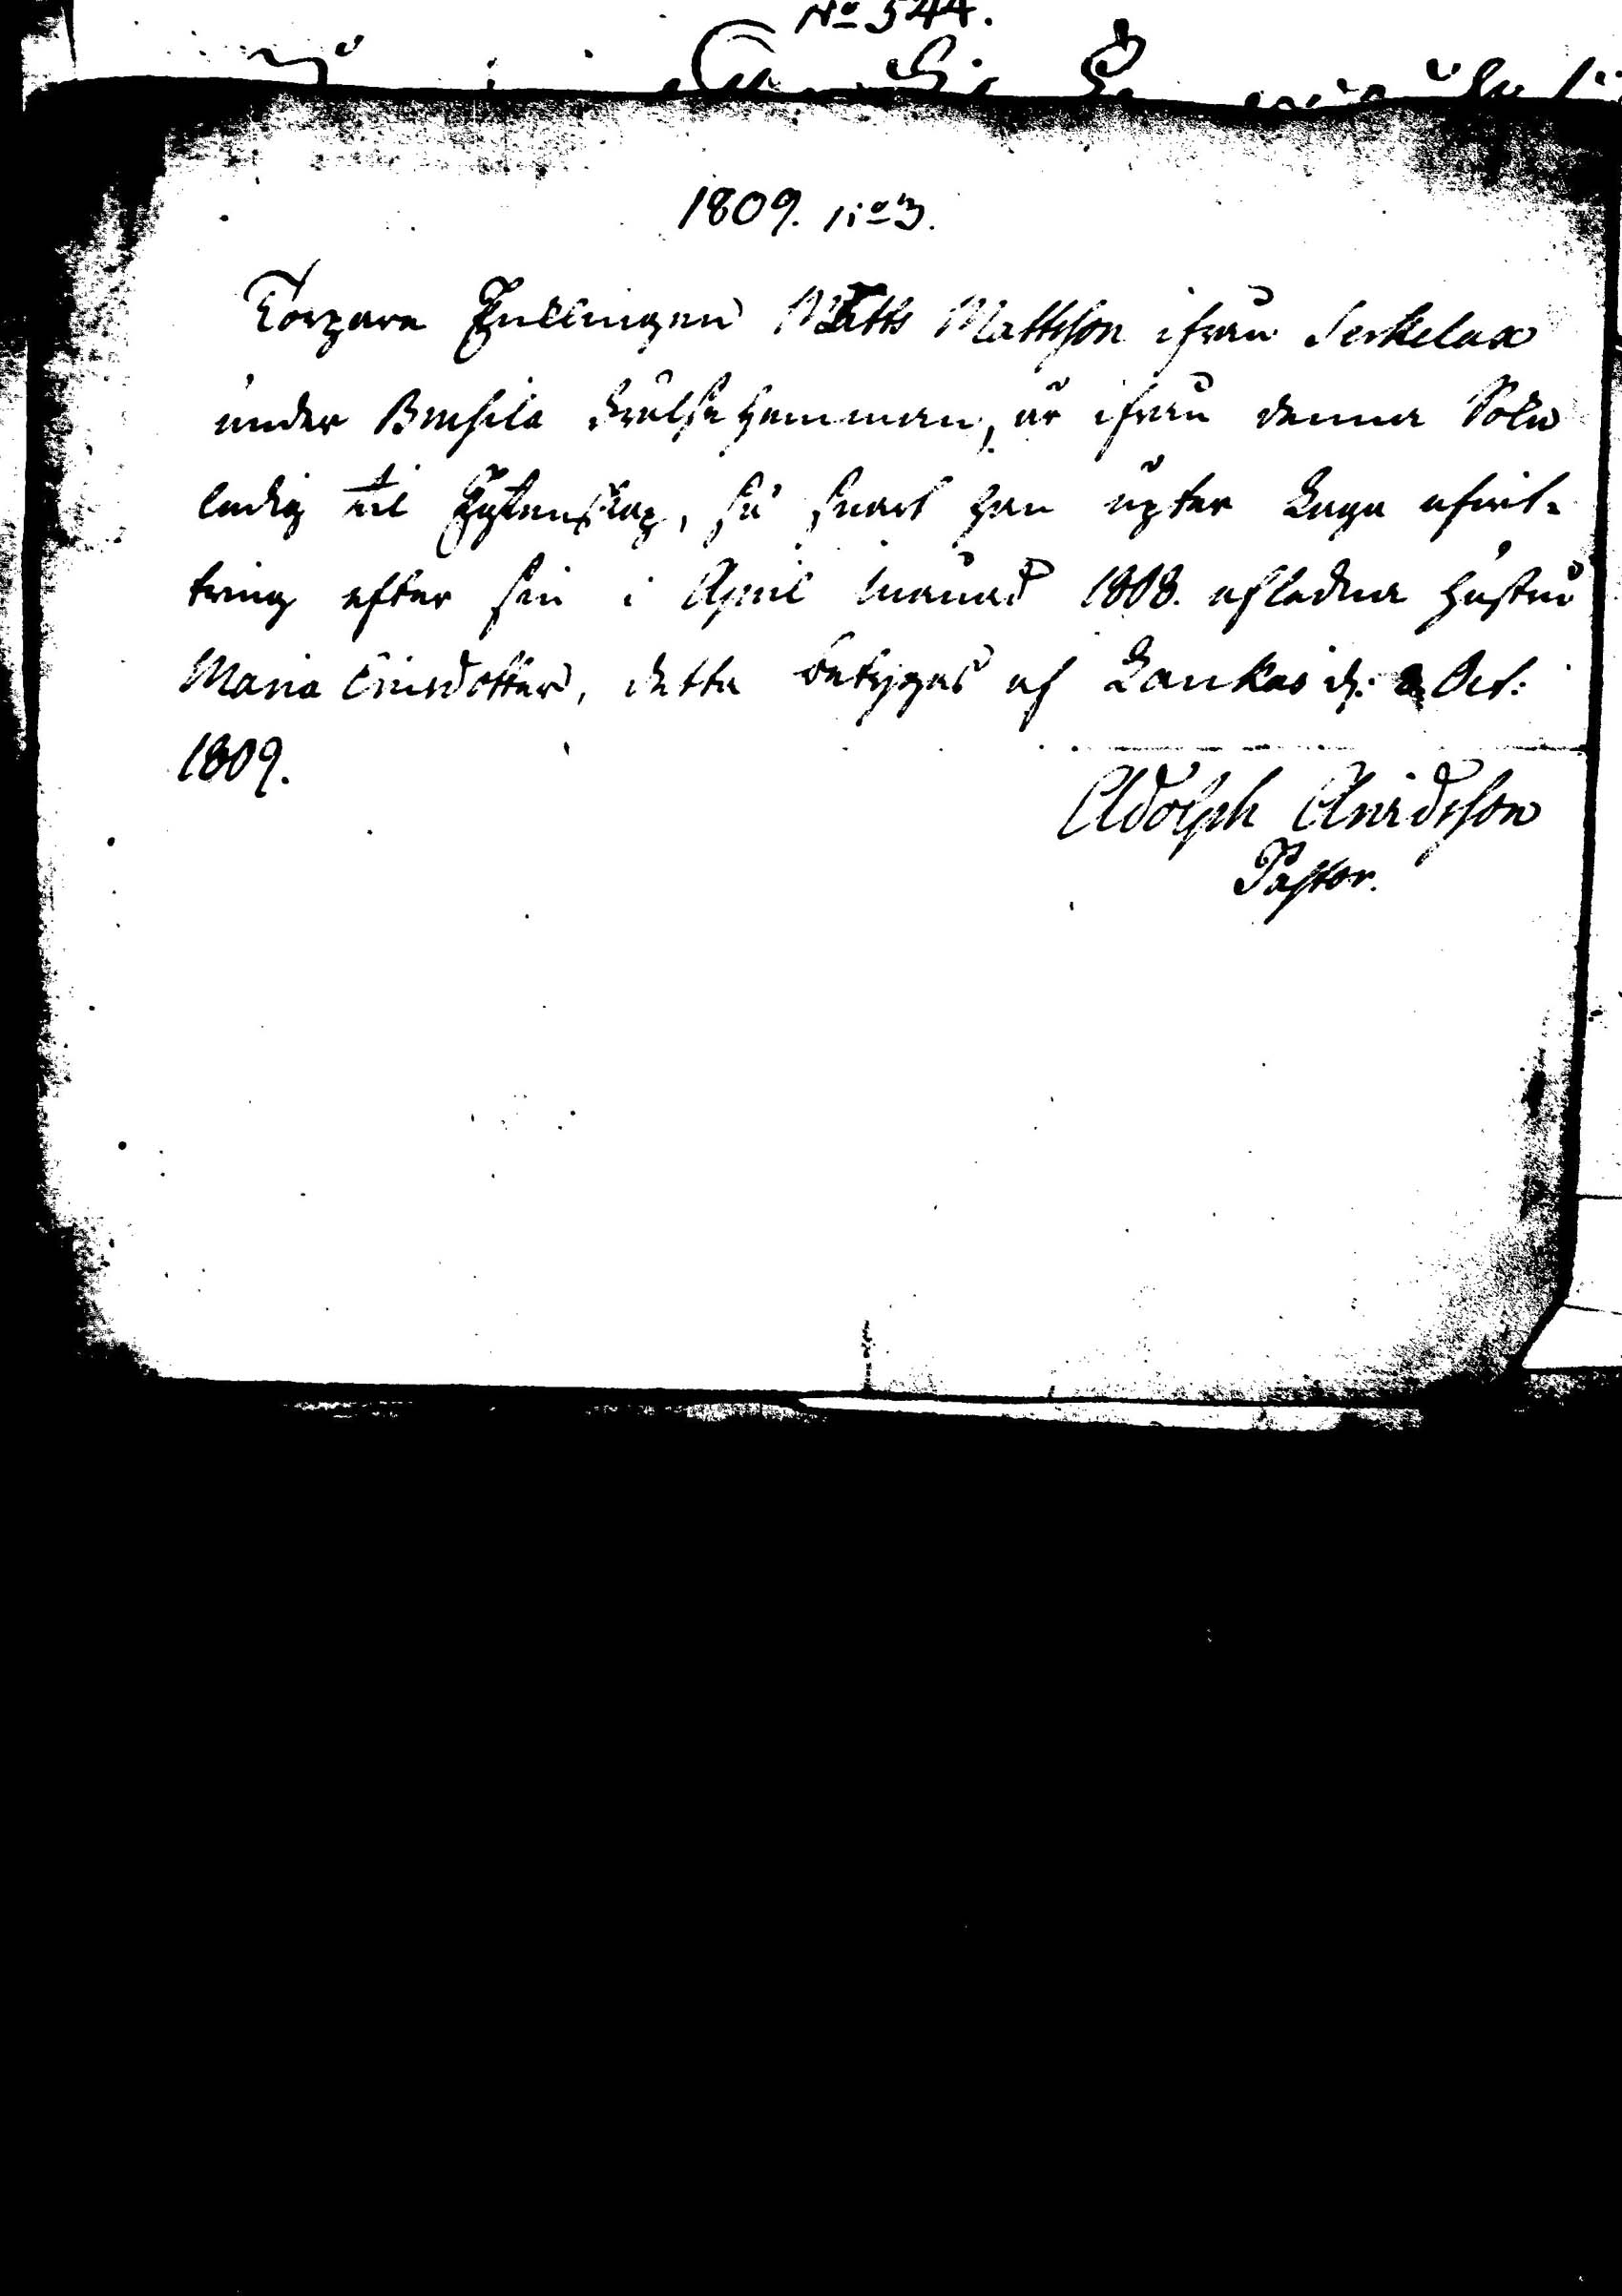 No 544.
1809. No 3.
Torpare Enklingen Matts Mattsson ifrån Serkelax
under Brusila frälse hemman, är ifrån denna Sokn
ledig til Ægtenskap, så snart han üpter Laga afwit-
tring efter sin i April månad 1808. afledna hustru
Maria Ericsdotter, detta betygas af Laukas d: Oct:
1809.
Adolph Arvidsson
Pastor.